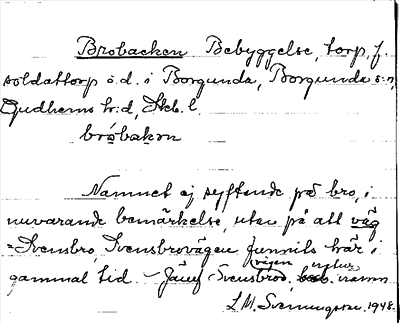 Brobacken Bebyggelse, torp, f.
soldattorp s.d. i Borgunda, Borgunda s:n,
Gudhems h:d, Skb. l.
bròbakɒn
Namnet ej syftande på bro, i
nuvarande bemärkelse, utan på att väg
=Svensbro, Svensbrovägen funnits här i
vägen natur
gammal tid. – Jämf Svensbro, namn
L. M. Svenungsson. 1948.